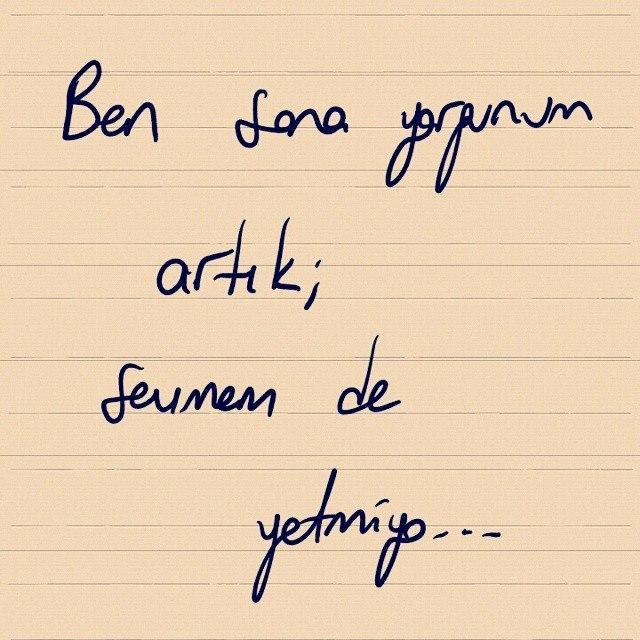 Ben sana yorgunum
artık;
sevmem de
yetmiyo...